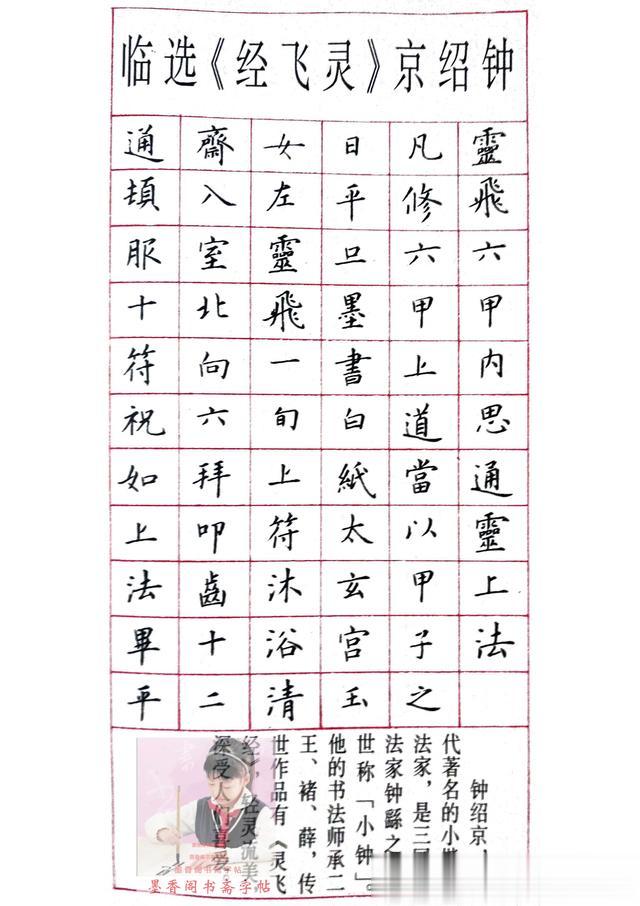 钟绍京《灵飞经》选临
靈飛六甲内思通靈上法
凡修六甲上道當以甲子之
日平旦墨書白紙太玄宫玉
女左靈飛一旬上符沐浴清
齋入室北向六拜叩齒十二
通頓服十符祝如上法畢平
钟绍京，
代著名的小楷
法家，是三国
法家钟繇之
世称「小钟」。
他的书法师承二
王、褚、薛，传
世作品有《灵飞
经》，轻灵流美，
深受人们喜爱。
墨香阁书斋字帖
墨香阁书斋字帖